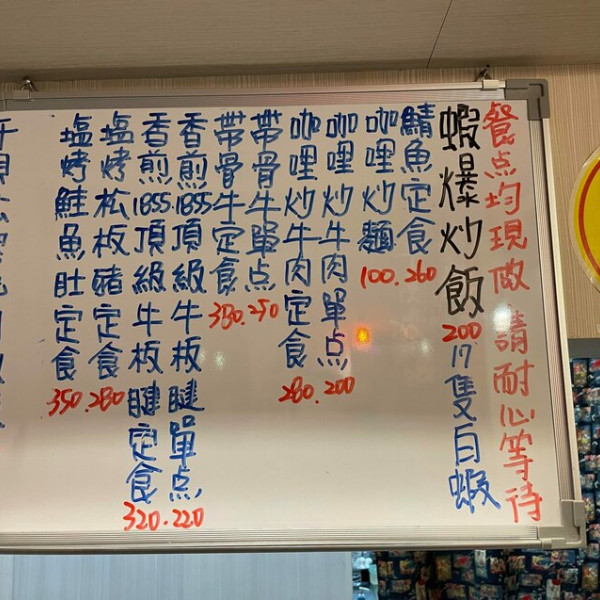 餐点均現做 請耐心等待
蝦爆炒飯 200 17隻白蝦
鯖魚定食 260
咖哩炒麵 100
咖哩炒牛肉單点 200
咖哩炒牛肉定食 280
帶骨牛單点 250
帶骨牛定食 380
香煎1855頂級牛板腱單点 220
香煎1855頂級牛板腱定食 320
塩烤松板豬定食 280
塩烤鮭魚肚定食 350